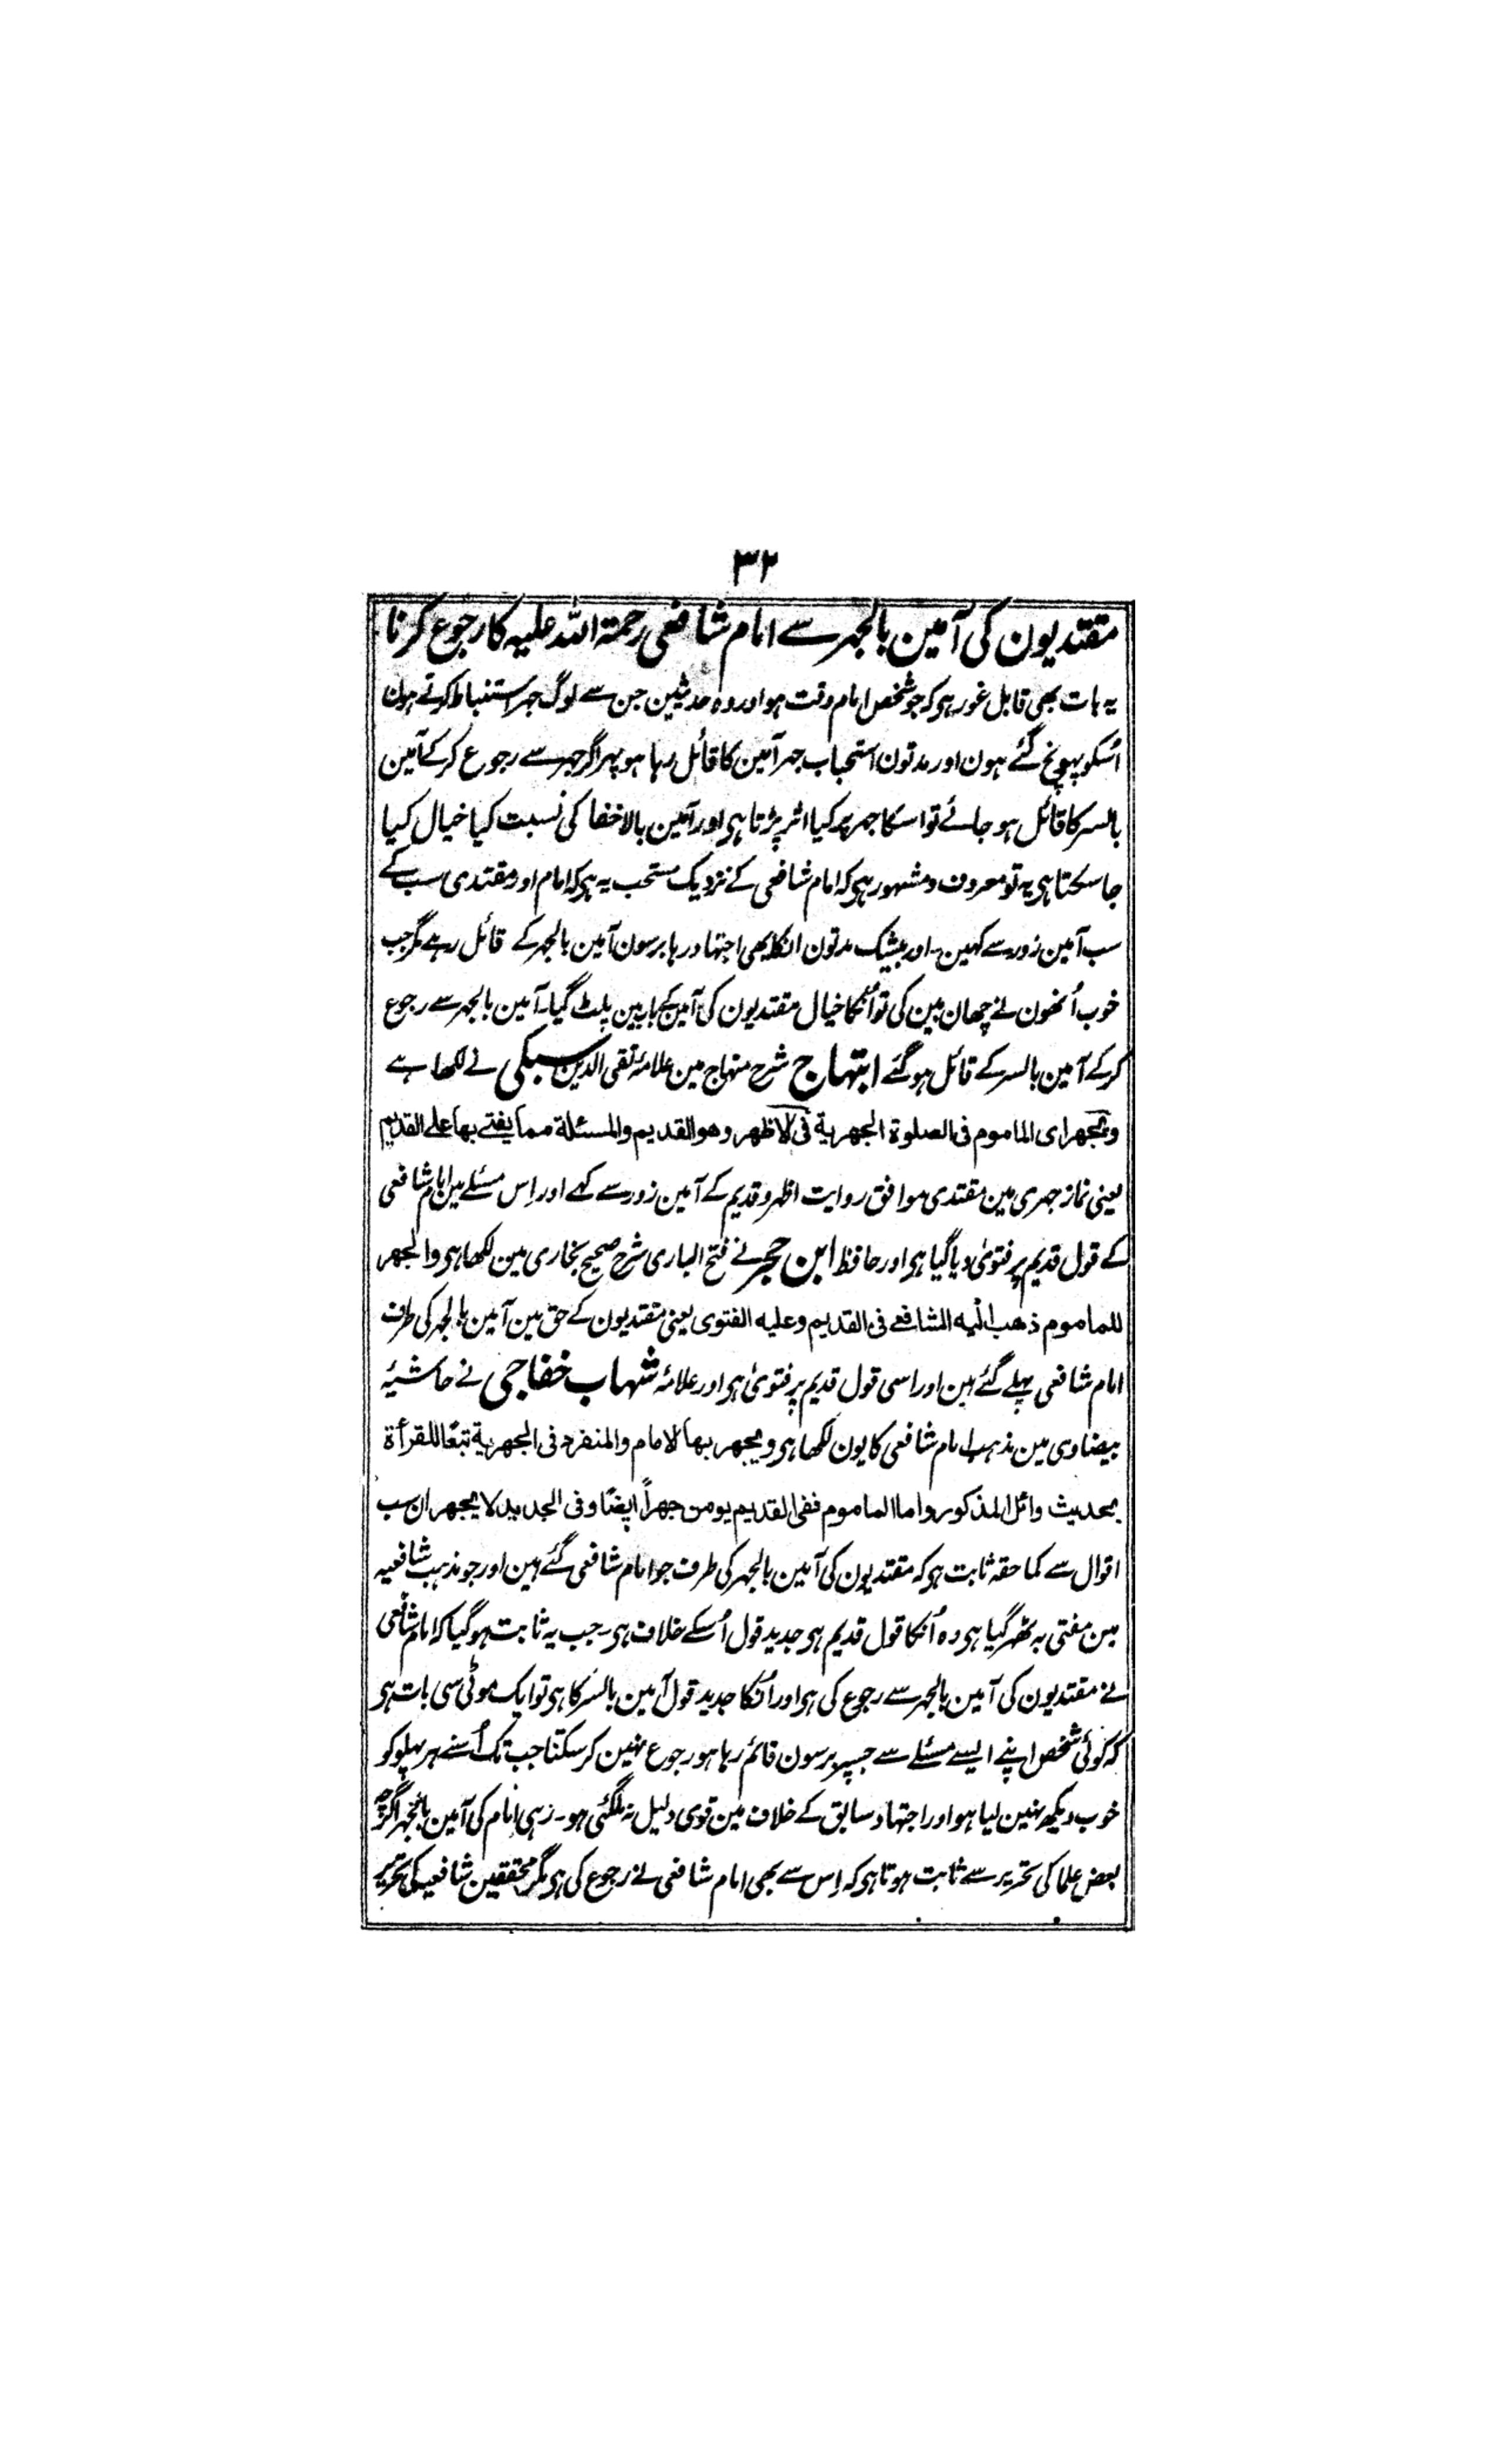 ۳۲
مقتدیون کی آمین بالجہر سے امام شافعی رحمۃ اللہ علیہ کا رجوع کرنا
یہ بات بھی قابل غور ہی کہ جو شخص امام وقت ہو اور وہ حدیثین جن سے لوگ جہر استنباط کرتے ہون
اُسکو پہونچ گئے ہون اور مدتون استحباب جہر آمین کا قائل رہا ہو پہر اگر جہر سے رجوع کرکے آمین
بالسر کا قائل ہو جائے تو اسکا جہر پر کیا اثر پڑتا ہی اور آمین بالاخفا کی نسبت کیا خیال کیا
جا سکتا ہی یہ تو معروف و مشہور ہی کہ امام شافعی کے نزدیک مستحب یہ ہی کہ امام اور مقتدی سب کے
سب آمین زور سے کہین۔ اور بیشک مدتون انکا یہی اجتہاد رہا برسون آمین بالجہر کے قائل رہے مگر جب
خوب اُنھون نے چھان بین کی تو اُنکا خیال مقتدیون کی آمین کے بار مین پلٹ گیا۔ آمین بالجہر سے رجوع
کرکے آمین بالسر کے قائل ہو گئے ابتہاج شرح منہاج مین علامۂ تقی الدین سبکی نے لکھا ہے
ویجہر ای الماموم فی الصلوۃ الجہریۃ فی الاظہر وھو القدیم والمسئلۃ مما یفتی بہا علی القدیم
یعنی نماز جہری مین مقتدی موافق روایت اظہر و قدیم کے آمین زور سے کہے اور اِس مسئلے مین امام شافعی
کے قول قدیم پر فتویٰ دیا گیا ہی اور حافظ ابن حجر نے فتح الباری شرح صحیح بخاری مین لکھا ہی والجھر
للماموم ذھب الیہ الشافعی فی القدیم وعلیہ الفتوی یعنی مقتدیون کے حق مین آمین بالجہر کی طرف
امام شافعی پہلے گئے ہین اور اسی قول قدیم پر فتویٰ ہی اور علامۂ شہاب خفاجی نے حاشیۂ
بیضاوی مین مذہب امام شافعی کا یون لکھا ہی ویجھر بھا الامام والمنفرد فی الجھریۃ تبعًا للقرأۃ
بحدیث وائل المذکور واما الماموم ففی القدیم یومن جھراً ایضًا وفی الجدید لا یجھر ان سب
اقوال سے کما حقہ ثابت ہی کہ مقتدیون کی آمین بالجہر کی طرف جو امام شافعی گئے ہین اور جو مذہب شافعیہ
مین مفتی بہ ٹھر گیا ہی وہ اُنکا قول قدیم ہی جدید قول اُسکے خلاف ہی۔ جب یہ ثابت ہو گیا کہ امام شافعی
نے مقتدیون کی آمین بالجہر سے رجوع کی ہی اور اُنکا جدید قول آمین بالسر کا ہی تو ایک موٹی سی بات ہی
کہ کوئی شخص اپنے ایسے مسئلے سے جسپر برسون قائم رہا ہو رجوع نہین کر سکتا جب تک اُسنے ہر پہلو کو
خوب دیکھ نہین لیا ہو اور اجتہاد سابق کے خلاف مین قوی دلیل نہ ملگئی ہو۔ رہی امام کی آمین بالجہر اگرچہ
بعض علما کی تحریر سے ثابت ہوتا ہی کہ اِس سے بھی امام شافعی نے رجوع کی ہی مگر محققین شافعیہ کی تحریر